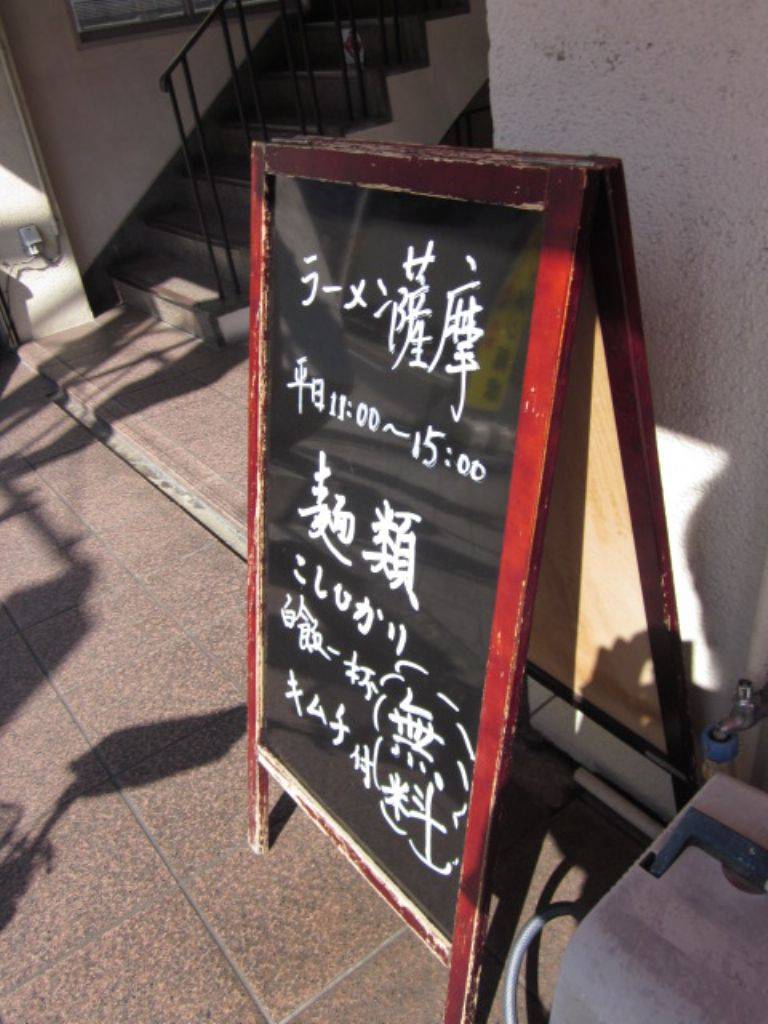 ラーメン薩摩
平日11:00〜15:00
麺類
こしひかり
白飯一杯
キムチ付
無料